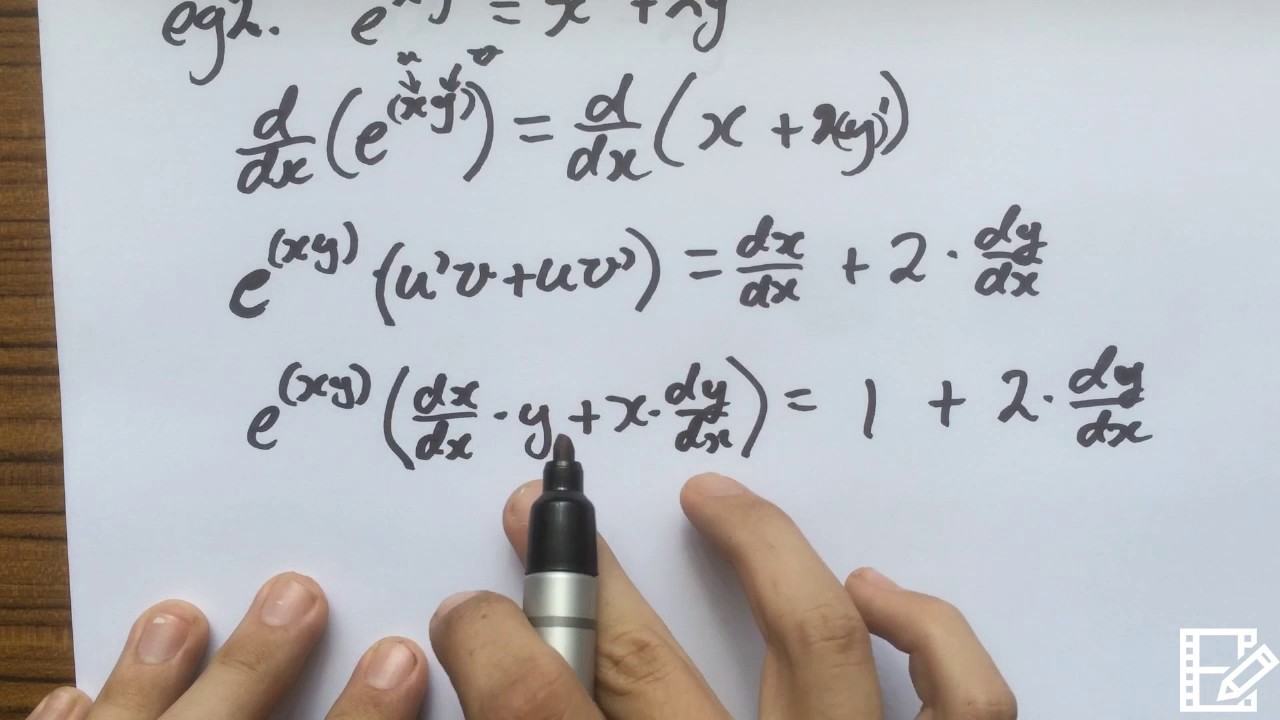 eg2. e^xy = x + 2y
u v
d/dx (e^(xy)) = d/dx (x + 2(y)¹)
e^(xy) (u'v + uv') = dx/dx + 2 · dy/dx
e^(xy) (dx/dx · y + x · dy/dx) = 1 + 2 · dy/dx